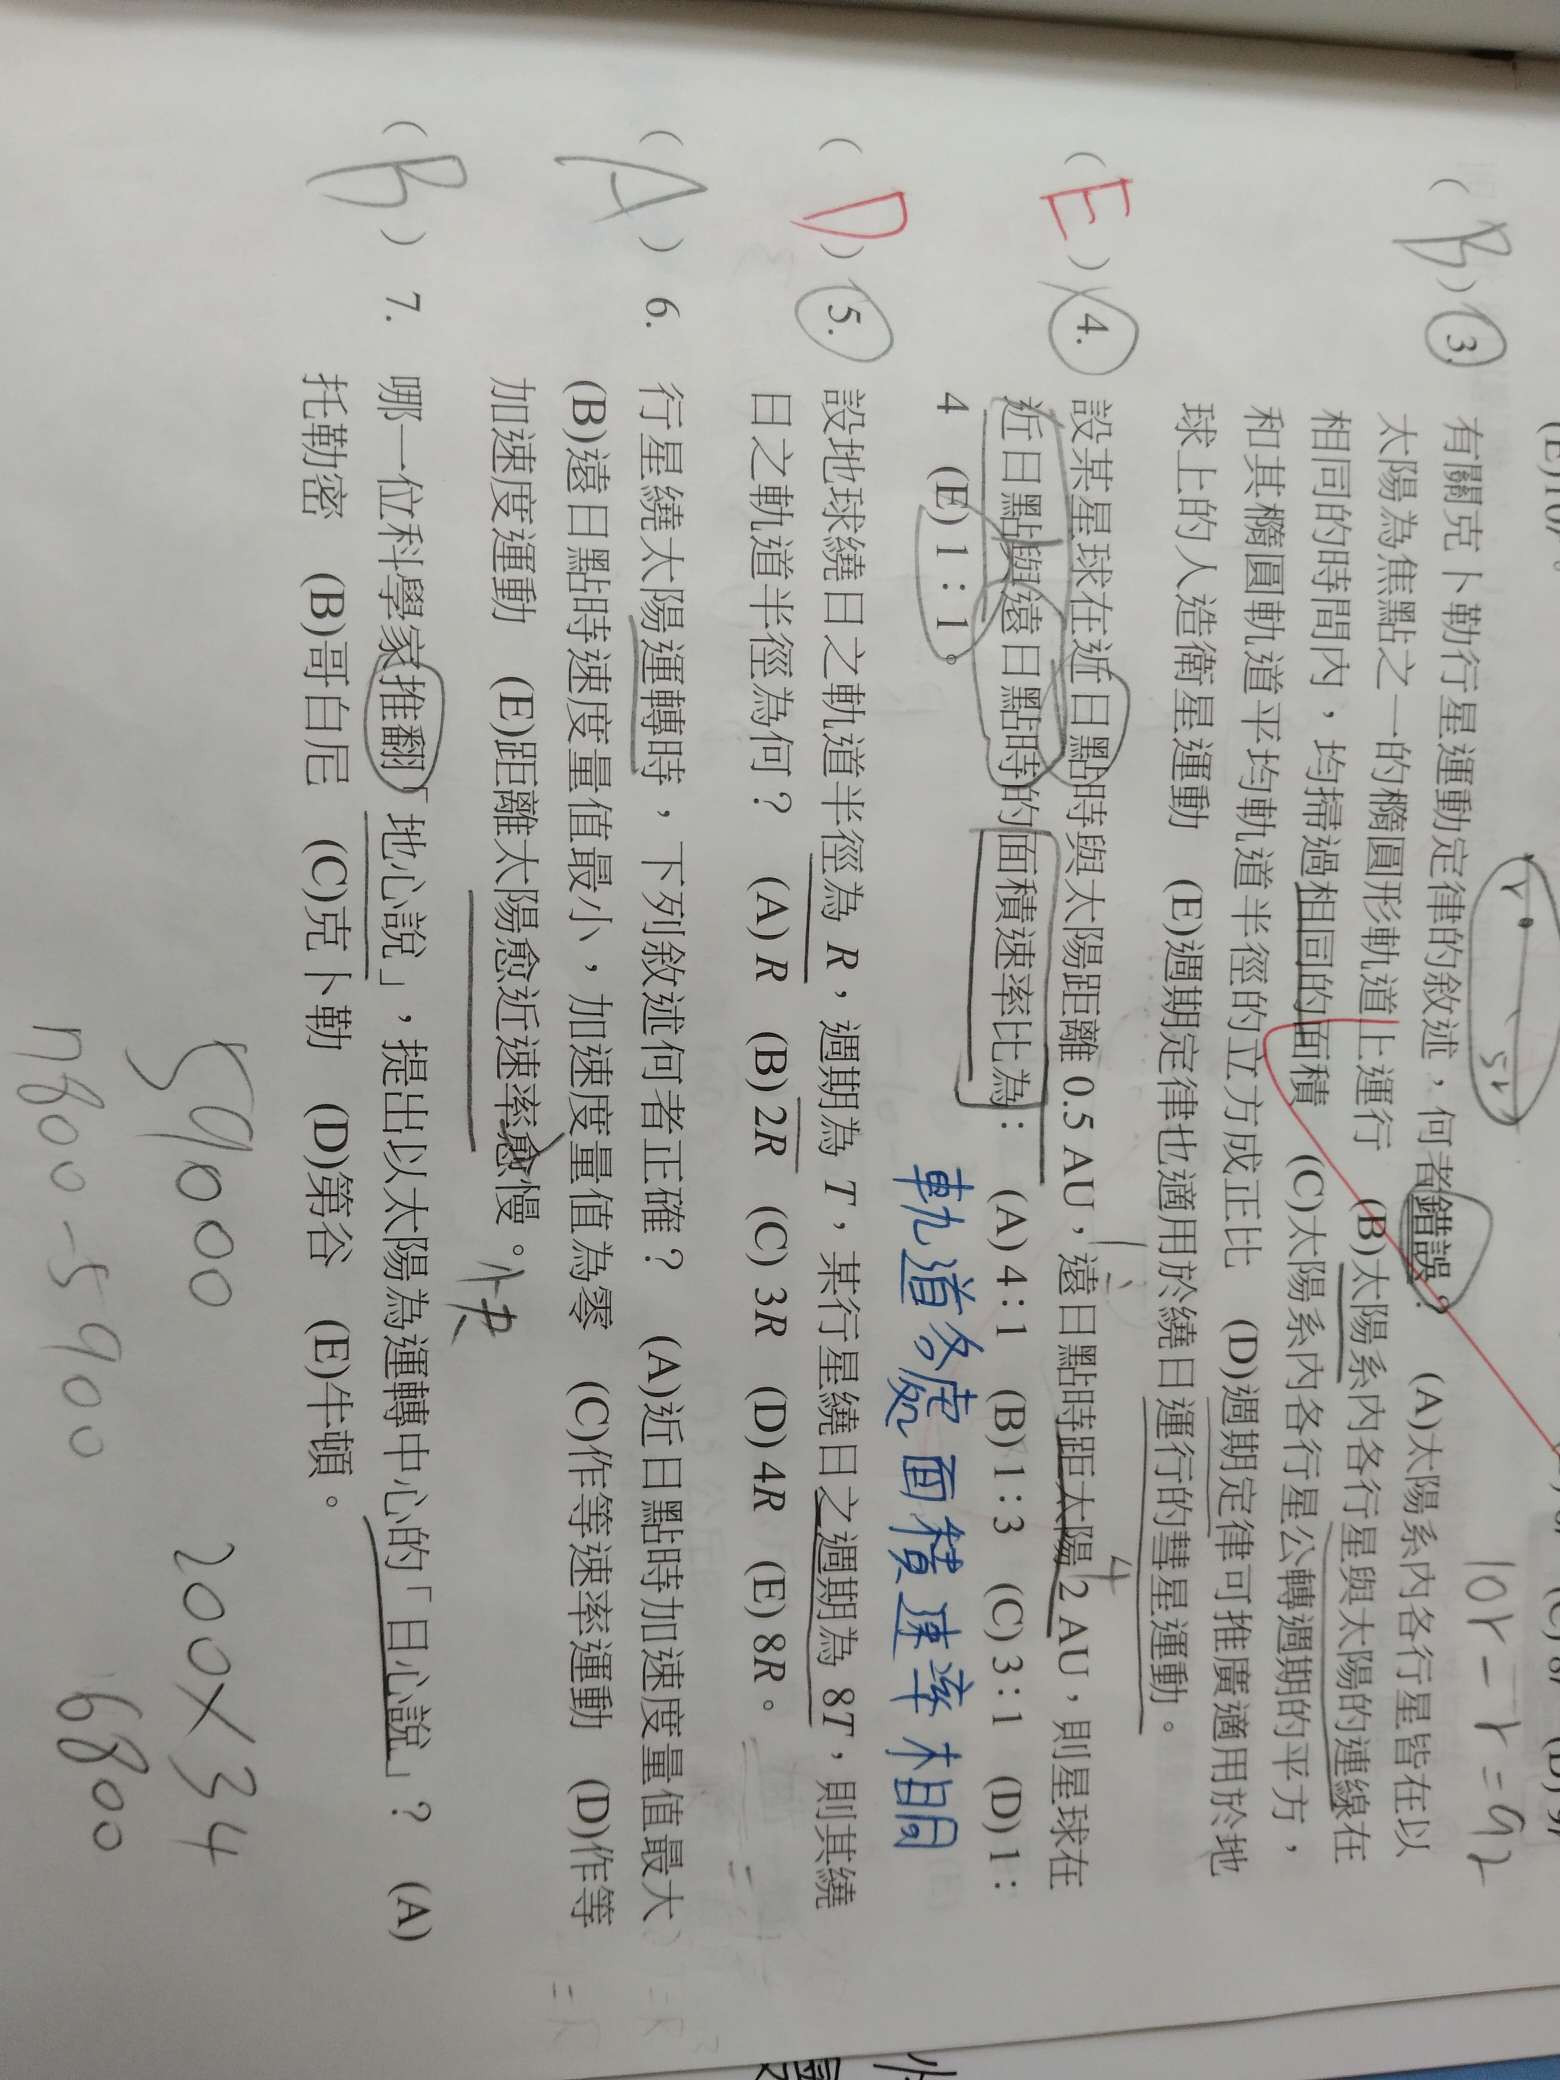 10r-r=92
r
5r
( B ) 3. 有關克卜勒行星運動定律的敘述，何者錯誤？ (A)太陽系內各行星皆在以
太陽為焦點之一的橢圓形軌道上運行 (B)太陽系內各行星與太陽的連線在
相同的時間內，均掃過相同的面積 (C)太陽系內各行星公轉週期的平方，
和其橢圓軌道平均軌道半徑的立方成正比 (D)週期定律可推廣適用於地
球上的人造衛星運動 (E)週期定律也適用於繞日運行的彗星運動。
1:4
( E ) 4. 設某星球在近日點時與太陽距離 0.5 AU，遠日點時距太陽 2 AU，則星球在
近日點與遠日點時的面積速率比為： (A) 4：1 (B) 1：3 (C) 3：1 (D) 1：
4 (E) 1：1。
軌道各處面積速率相同
( D ) 5. 設地球繞日之軌道半徑為 R，週期為 T，某行星繞日之週期為 8T，則其繞
日之軌道半徑為何？ (A) R (B) 2R (C) 3R (D) 4R (E) 8R。
( A ) 6. 行星繞太陽運轉時，下列敘述何者正確？ (A)近日點時加速度量值最大
(B)遠日點時速度量值最小，加速度量值為零 (C)作等速率運動 (D)作等
加速度運動 (E)距離太陽愈近速率愈慢。
快
( B ) 7. 哪一位科學家推翻「地心說」，提出以太陽為運轉中心的「日心說」？ (A)
托勒密 (B)哥白尼 (C)克卜勒 (D)第谷 (E)牛頓。
200×34
59000
6800